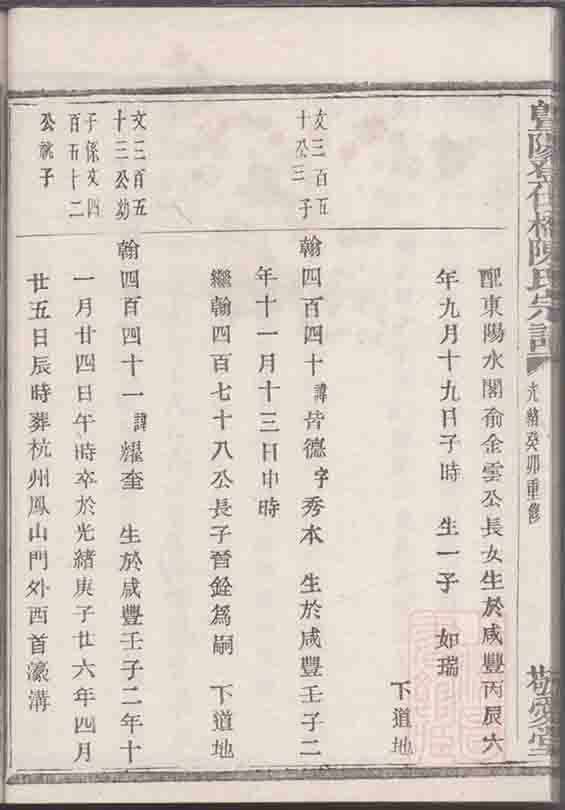 暨陽登仕橋陳氏宗譜
光緒癸卯重修
敬愛堂
配東陽水閣俞金雲公長女生於咸豐丙辰六
年九月十九日子時　生一子　如瑞
下道地
文三百五
十公三子
翰四百四十諱晉德字秀本　生於咸豐壬子二
年十一月十三日申時
繼翰四百七十八公長子晉銓為嗣　下道地
文三百五
十三公幼
子係文四
百五十二
公祧子
翰四百四十一諱耀奎　生於咸豐壬子二年十
一月廿四日午時卒於光緒庚子廿六年四月
廿五日辰時葬杭州鳳山門外西首濠溝